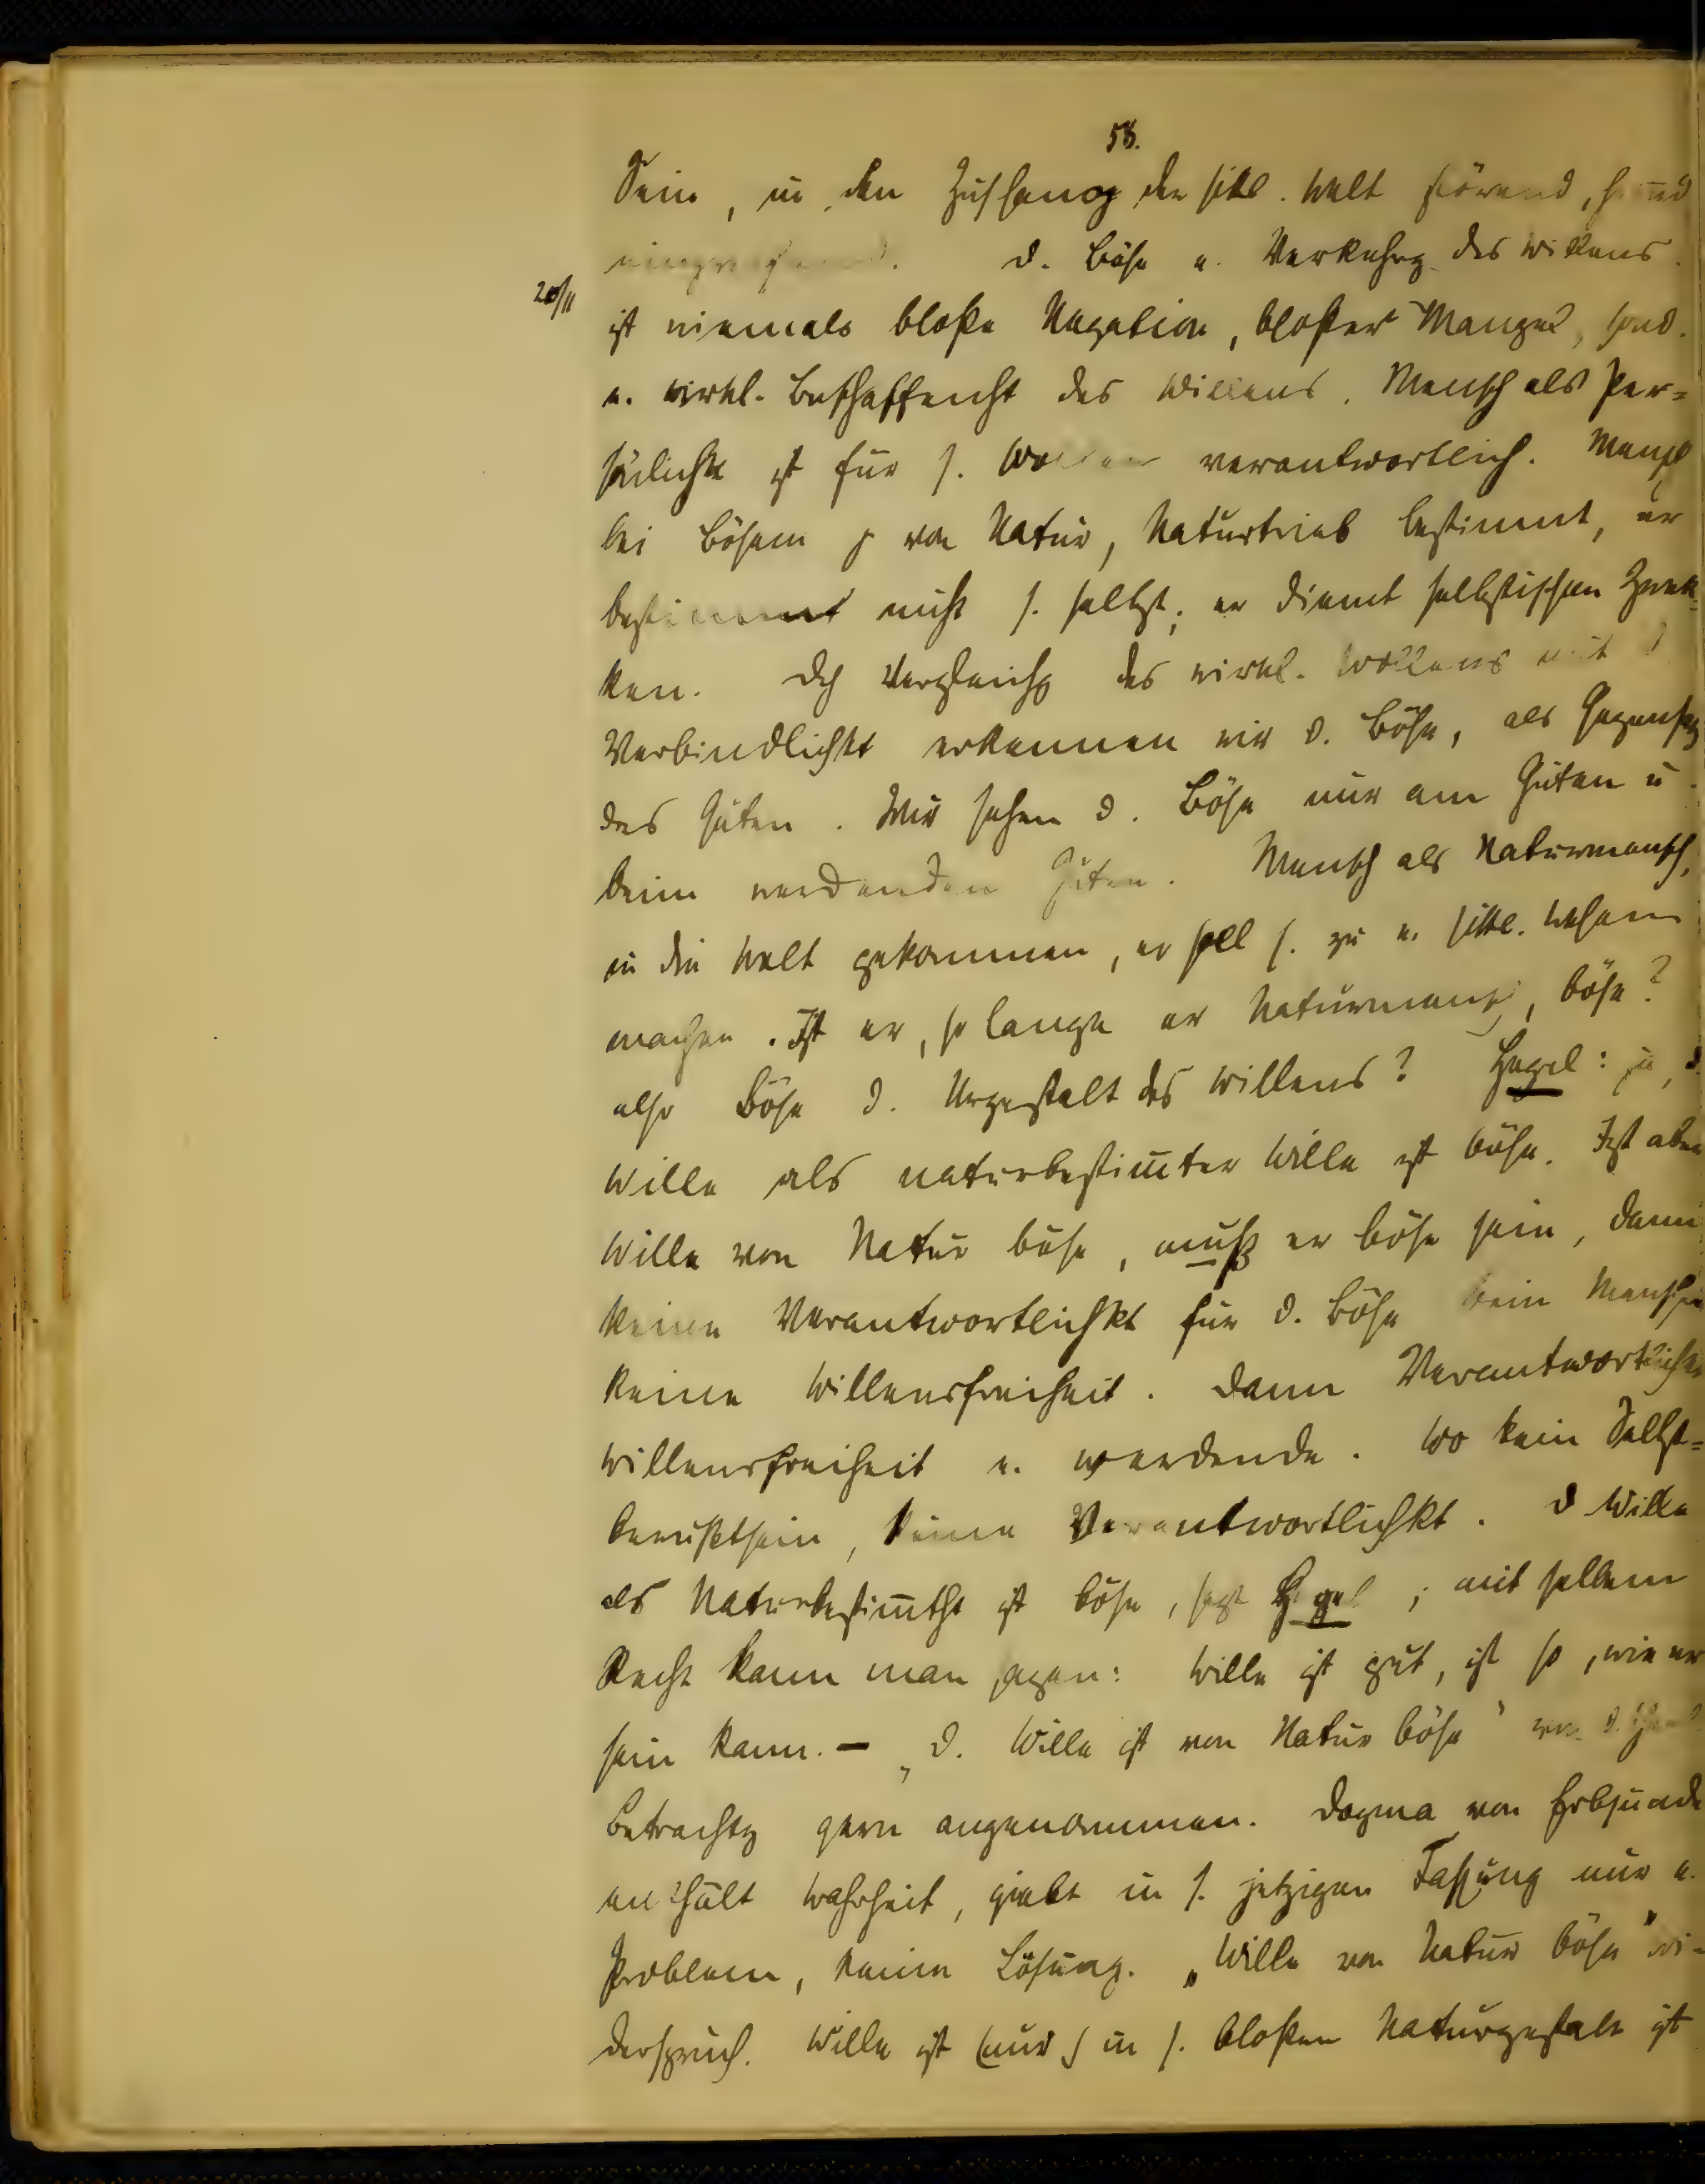 58.
Sein, in den Zushang der sittl. Welt störend,
d. Böse e. Verkehrg des Willens.
20/11
ist niemals bloße Negation, bloßer Mangel, sond.
e. wirkl. Beschaffenht des Willens. Mensch als Per-
sönlichkt ist für s. Wollen verantwortlich. Mensch
bei Bösem von Natur, Naturtrieb bestimmt, er
bestimmt nicht s. selbst; er dient selbstischen Zwek-
ken. Dch Vergleichg des wirkl. Wollens mit d.
Verbindlichkt erkennen wir d. Böse, als Gegensatz
des Guten. Wir sehen d. Böse nur am Guten u.
beim werdenden Guten. Mensch als Naturmensch,
in die Welt gekommen, er soll s. zu e. sittl. Wesen
machen. Ist er, so lange er Naturmensch, böse?
also Böse d. Urgestalt des Willens? Hegel: ja, d.
Wille als naturbestim̅ter Wille ist böse. Ist aber
Wille von Natur böse, muß er böse sein, dann
keine Verantwortlichkt für d. Böse beim Menschen
keine Willensfreiheit. Dann Verantwortlichkt
Willensfreiheit e. werdende. Wo kein Selbst-
bewußtsein, keine Verantwortlichkt. D Wille
als Naturbestim̅tht ist böse, sagt Hegel; mit selbem
Recht kann man sagen: Wille ist gut, ist so, wie er
sein kann. – „D. Wille ist von Natur böse" von d.
Betrachtg gern angenommen. Dogma von Erbsünde
enthält Wahrheit, giebt in s. jetzigen Fassung nur e.
Problem, keine Lösung. „Wille von Natur böse" Wi-
derspruch. Wille ist (nur) in s. bloßen Naturgestalt ist